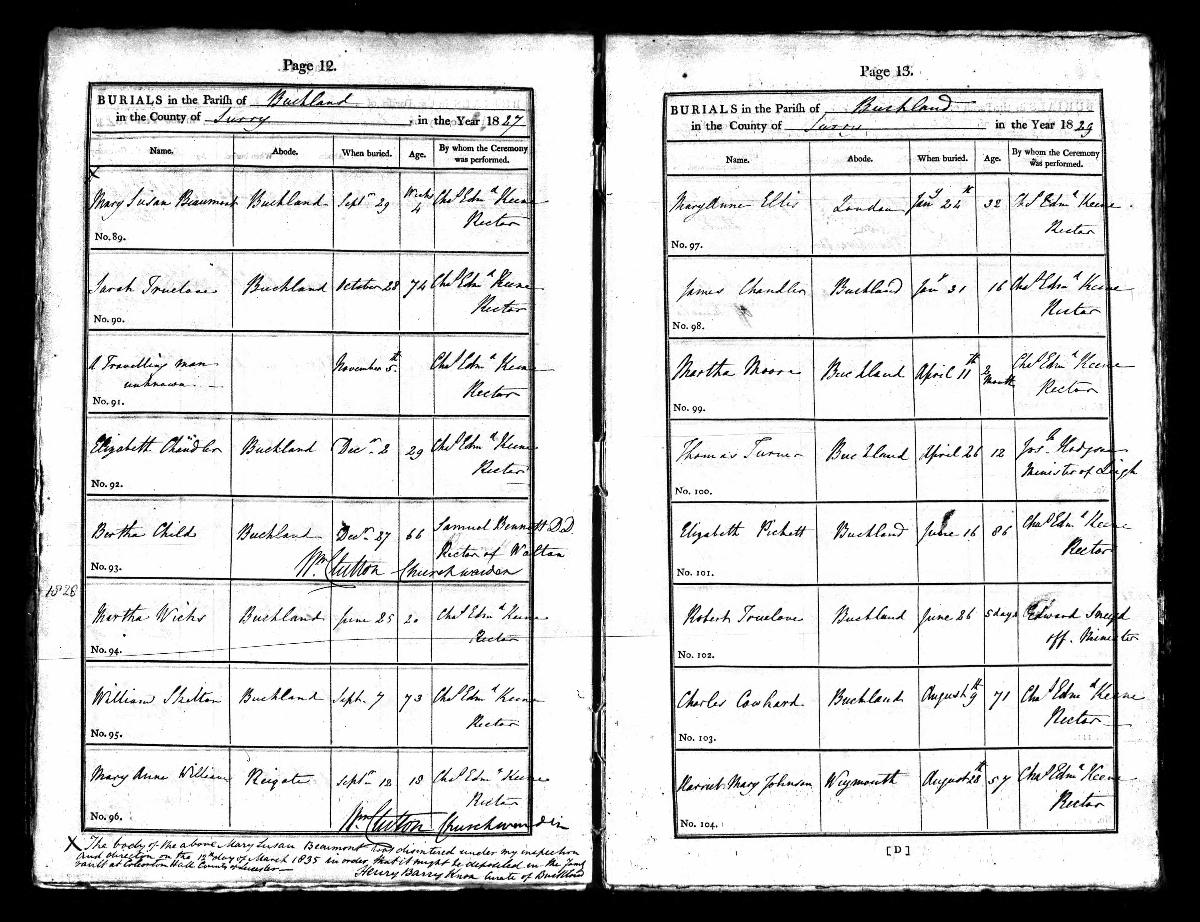 Page 12.
BURIALS in the Parish of Buckland
in the County of Surry in the Year 1827
Name. Abode. When buried. Age. By whom the Ceremony was performed.
X
Mary Susan Beaumont Buckland Septr 29 Weeks 4 Chas Edmd Keene Rector
No. 89.
Sarah Truelove Buckland October 28 74 Chas Edmd Keene Rector
No. 90.
A Travelling man unknown November 5th Chas Edmd Keene Rector
No. 91.
Elizabeth Chandler Buckland Decr 2 29 Chas Edmd Keene Rector
No. 92.
Bertha Child Buckland Decr 27 66 Samuel Bennett D.D. Rector of Walton
No. 93.
Wm Clutton Churchwarden
1828
Martha Wicks Buckland June 25 20 Chas Edmd Keene Rector
No. 94.
William Skelton Buckland Sept. 7 73 Chas Edmd Keene Rector
No. 95.
Mary Anne William Reigate Septr 12 18 Chas Edmd Keene Rector
No. 96.
Wm Clutton Churchwarden
X The body of the above Mary Susan Beaumont was disinterred under my inspection
and direction on the 12th day of March 1835 in order that it might be deposited in the family
vault at Coleorton Hall County of Leicester
Henry Barry Knox Curate of Buckland
Page 13.
BURIALS in the Parish of Buckland
in the County of Surry in the Year 1829
Name. Abode. When buried. Age. By whom the Ceremony was performed.
Mary Anne Ellis London Jany 24th 32 Chs Edmd Keene Rector
No. 97.
James Chandler Buckland Jany 31 16 Chas Edmd Keene Rector
No. 98.
Martha Moore Buckland April 11th 2 Month Chas Edmd Keene Rector
No. 99.
Thomas Turner Buckland April 26 12 Josh Hodgson Minister of Leigh
No. 100.
Elizabeth Pickett Buckland June 16 86 Chas Edmd Keene Rector
No. 101.
Robert Truelove Buckland June 26 5 days Edward Sneyd off. Minister
No. 102.
Charles Cowhard Buckland August 9th 71 Chas Edmd Keene Rector
No. 103.
Harriet Mary Johnson Weymouth August 28th 57 Chas Edmd Keene Rector
No. 104.
[ D ]